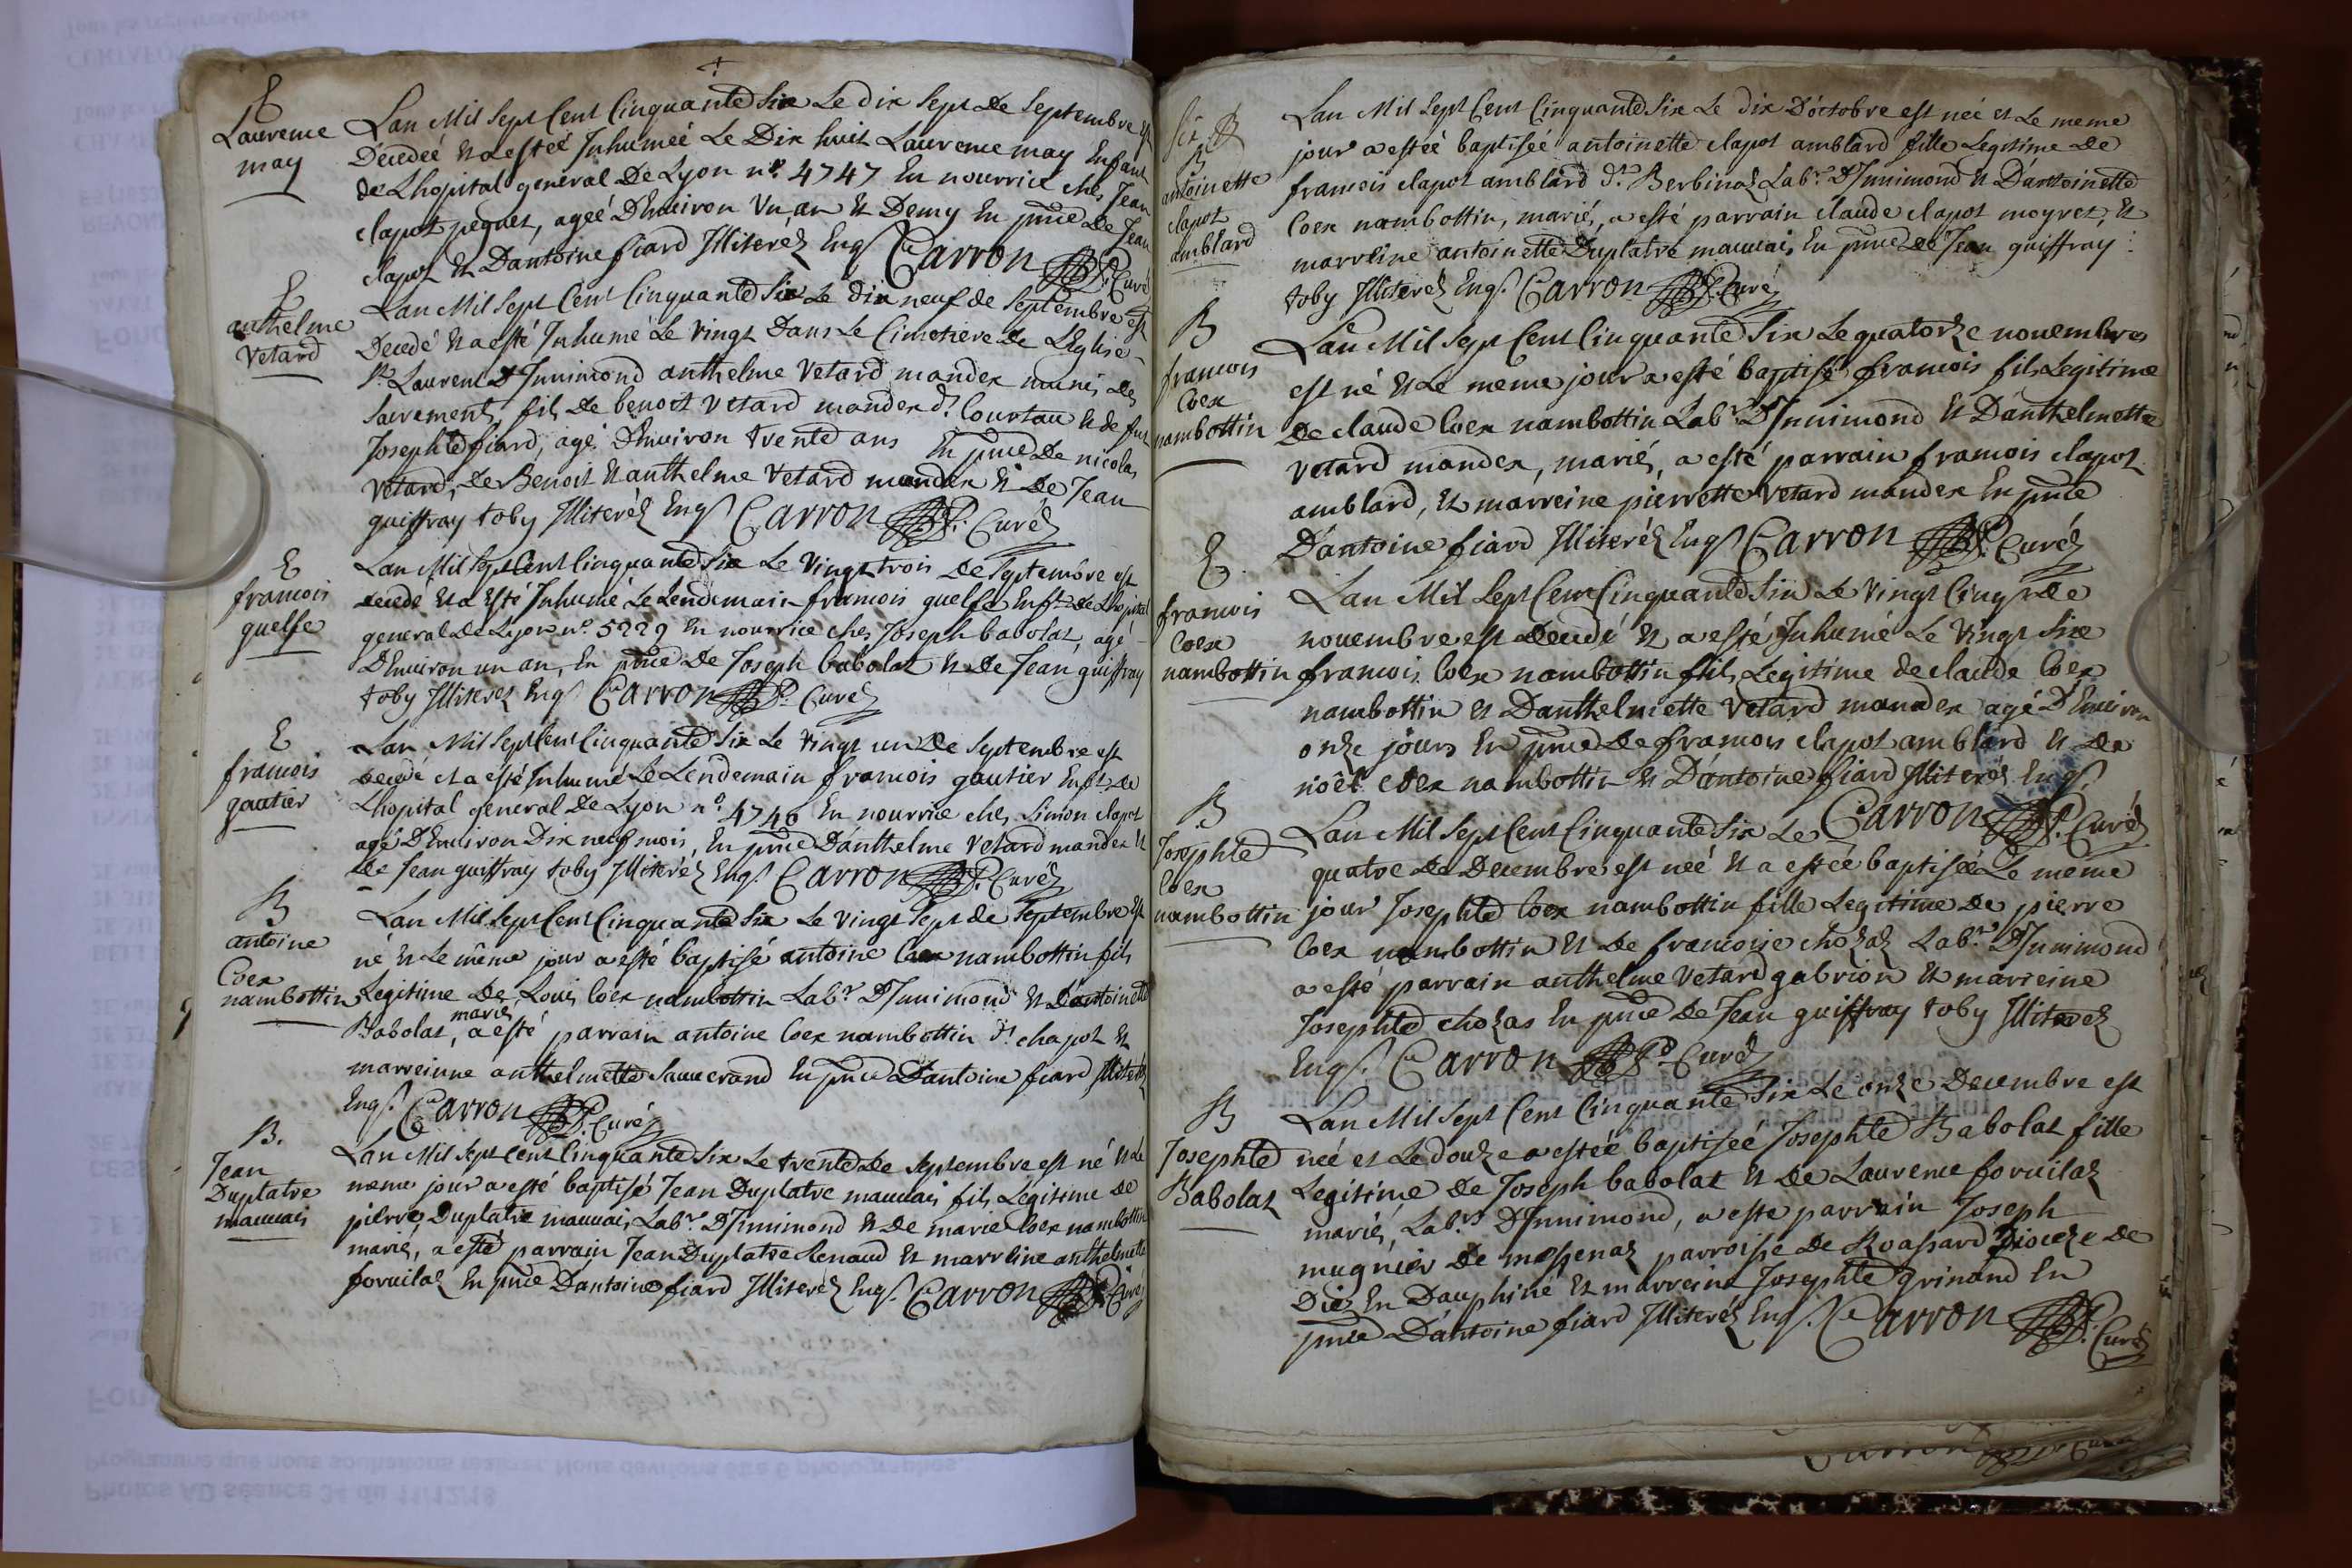 E
Laurence
may
Lan Mil Sept Cent Cinquante Six Le dix Sept de Septembre est
Décedeé et a estéé Inhumeé Le Dix huit Laurence may Enfant
de Lhopital general De Lyon n.º 4747 En nourrice ches Jean
clapot peguet, ageé D'Environ Vn an et Demy En pnce de Jean
clapot et Dantoine fiard Illiteréz Enqs Carron P. Curé
E
anthelme
Vetard
Lan Mil Sept Cent Cinquante Six Le dix neuf de Septembre est
Decedé et a esté Inhumé Le Vingt Dans Le Cimetiere de LEglise
St Laurent D'Innimond anthelme Vetard mandex munis des
Sacrements, fils de benoit Vetard mandex dt Courtau et de fue
Josephte fiard, agé D'Environ trente ans En pnce De nicolas
Vetard, de Benoit et anthelme Vetard mandex et de Jean
guiffray toby Illiteréz Enqs Carron P. Curéz
E
francois
guelfe
Lan Mil Sept Cent Cinquante Six Le Vingt trois De Septembre est
decedé et a Esté Inhumé Le Lendemain francois guelfe Enft de Lhopital
general de Lyon nº. 5229 En nourrice ches Joseph babolat, agé
D'Environ un an, En pnce De Joseph babolat et de Jean guiffray
toby Illiterez Enqs Carron P. Curéz
E
francois
gautier
Lan Mil Sept Cent Cinquante Six Le Vingt un De Septembre est
decedé et a été Inhumé Le Lendemain francois gautier Enft de
Lhopital general de Lyon nº. 4740 En nourrice ches Simon clapot
agé D'Environ Dix neuf mois, En pnce D'anthelme Vetard mandex et
De Jean guiffray toby Illiteréz Enqs Carron P. Curéz
B
antoine
Coex
nambottin
Lan Mil Sept Cent Cinquante Six Le Vingt Sept de Septembre est
né et Le même jour a esté baptisé antoine Coex nambottin fils
Legitime De Louis Coex nambottin Labr D'Innimond et D'antoinette
mariés
Babolat, a esté parrain antoine Coex nambottin dt chapot et
marreinne anthelmette Sauverand En pnce D'antoine fiard Illiteréz
Enqs. Carron P. Curéz
B.
Jean
Duplatre
mauvais
Lan Mil Sept Cent Cinquante Six Le trente de Septembre est né et Le
meme jour a esté baptisé Jean Duplatre mauvais fils Legitime de
pierre Duplatre mauvais Labr. D'Innimond et de marie Coex nambottin
mariés, a esté parrain Jean Duplatre Renaud et marreine anthelmette
forvilaz En pnce D'antoine fiard Illiteréz Enqs. Carron P. Curé
B
antoinette
clapot
amblard
Lan Mil Sept Cent Cinquante Six Le dix D'octobre est neé et Le meme
jour a esteé baptiseé antoinette clapot amblard fille Legitime de
francois clapot amblard dt Berbinoz Labr. D'Innimond et D'antoinette
Coex nambottin, mariés, a esté parrain claude clapot moyret, et
marreine antoinette Duplatre mauvais, En pnce de Jean guiffray
toby Illiteréz Enqs. Carron P. Curéz
B
francois
Coex
nambottin
Lan Mil Sept Cent Cinquante Six Le quatorze novembres
est né et Le meme jour a esté baptisé francois fils Legitime
De claude Coex nambottin Labr. D'Innimond et D'anthelmette
Vetard mandex, mariés, a esté parrain francois clapot
amblard, et marreine pierrette Vetard mandex En pnce
D'antoine fiard Illiteréz Enqs Carron P. Curéz
E
francois
Coex
nambottin
Lan Mil Sept Cent Cinquante Six Le Vingt Cinq De
novembre est Decedé et a esté Inhumé Le Vingt Six
francois Coex nambottin fils Legitime de claude Coex
nambottin et Danthelmette Vetard mandex agé D'Environ
onze jours En pnce De francois clapot amblard et de
noêl Coex nambottin et D'antoine fiard Illiteréz Enqs.
Carron P. Curéz
B
Josephte
Coex
nambottin
Lan Mil Sept Cent Cinquante Six Le
quatre de Decembre est neé et a esteé baptiseé Le meme
jour Josephte Coex nambottin fille Legitime de pierre
Coex nambottin et De francoise chozaz Labr. D'Innimond
a esté parrain anthelme Vetard gabrion et marreine
Josephte chozas En pnce De Jean guiffray toby Illiteréz
Enqs. Carron P. Curéz
B
Josephte
Babolat
Lan Mil Sept Cent Cinquante Six Le onze Decembre est
neé et Le douze a esteé baptiseé Josephte Babolat fille
Legitime de Joseph babolat et de Laurence forvilaz
mariés, Labrs D'Innimond, a este parrain Joseph
mugnier de massenaz parroisse de Roassard Dioceze de
Die, En Dauphiné et marreine Josephte grinand En
pnce D'antoine fiard Illiteréz Enqs. Carron P. Curéz